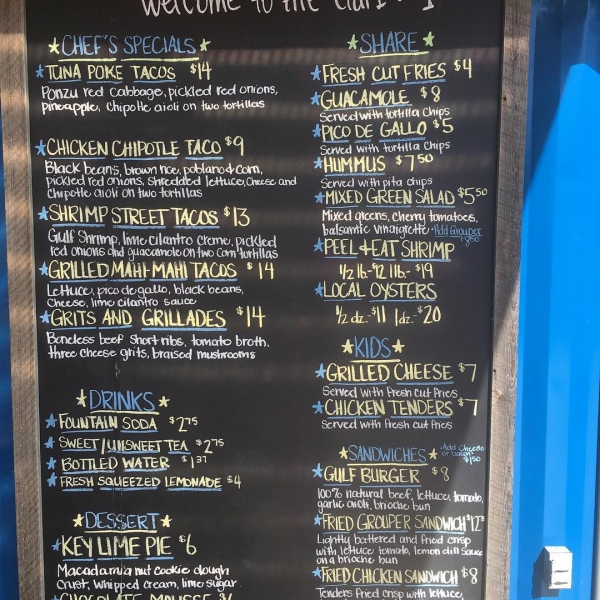 welcome to the
CHEF'S SPECIALS
TUNA POKE TACOS $14
Ponzu red cabbage, pickled red onions,
pineapple, Chipotle aioli on two tortillas
CHICKEN CHIPOTLE TACO $9
Black beans, brown rice, poblano corn,
pickled red onions, shredded lettuce, Cheese and
Chipotle aioli on two tortillas
SHRIMP STREET TACOS $13
Gulf Shrimp, lime cilantro creme, pickled
red onions and guacamole on two corn tortillas
GRILLED MAHI-MAHI TACOS $14
Lettuce, pico de gallo, black beans,
Cheese, lime cilantro sauce
GRITS AND GRILLADES $14
Boneless beef short ribs, tomato broth,
three cheese grits, braised mushrooms
DRINKS
FOUNTAIN SODA $2.75
SWEET/UNSWEET TEA $2.75
BOTTLED WATER $1.37
FRESH SQUEEZED LEMONADE $4
DESSERT
KEY LIME PIE $6
Macadamia nut cookie dough
Crust, whipped cream, lime sugar
CHOCOLATE MOUSSE
SHARE
FRESH CUT FRIES $4
GUACAMOLE $8
Served with tortilla Chips
PICO DE GALLO $5
Served with tortilla Chips
HUMMUS $7.50
Served with pita chips
MIXED GREEN SALAD $5.50
Mixed greens, cherry tomatoes,
balsamic vinaigrette -Add Grouper
PEEL + EAT SHRIMP
1/2 lb-$12 1lb-$19
LOCAL OYSTERS
1/2 dz-$11 1dz-$20
KIDS
GRILLED CHEESE $7
Served with Fresh Cut Fries
CHICKEN TENDERS $7
Served with Fresh Cut Fries
SANDWICHES -Add Cheese
or bacon
$1.50
GULF BURGER $8
100% natural beef, lettuce, tomato,
garlic aioli, brioche bun
FRIED GROUPER SANDWICH $12
Lightly battered and fried crisp
with lettuce tomato, lemon dill sauce
on a brioche bun
FRIED CHICKEN SANDWICH $8
Tenders fried crisp with lettuce,